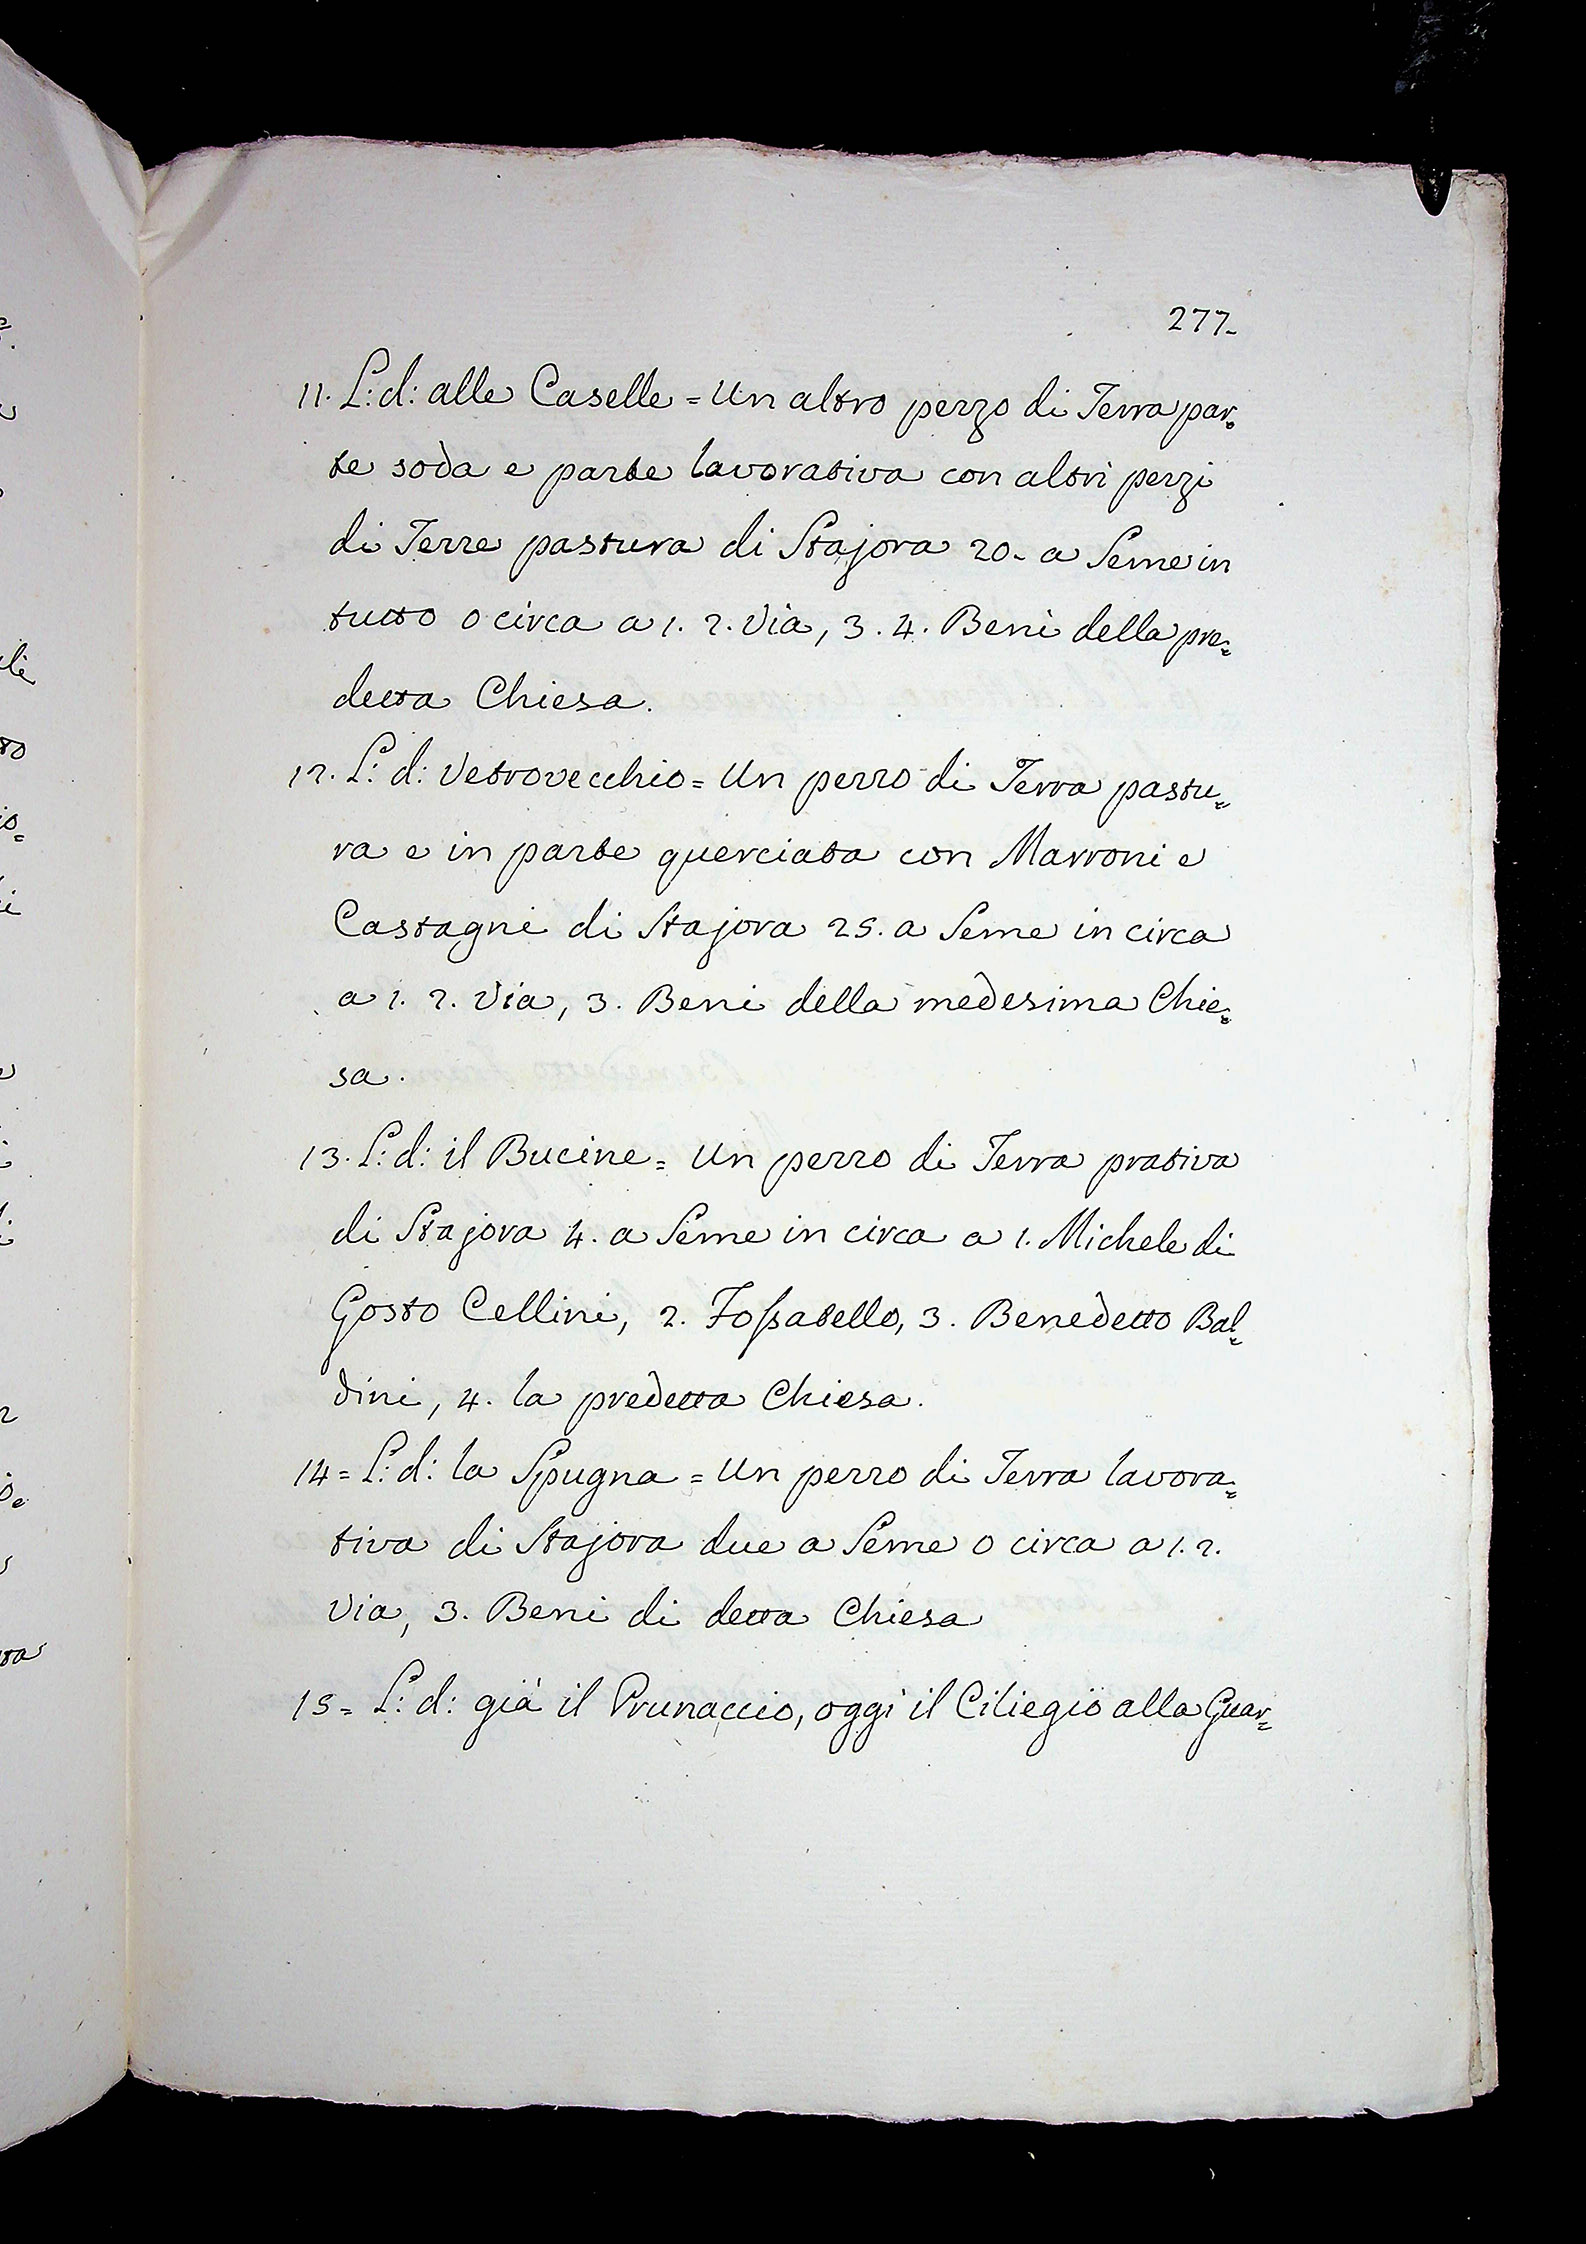 277.
11. L: d: alle Caselle = Un altro pezzo di Terra par=
te soda e parte lavorativa con altri pezzi
di Terre pastura di Stajora 20. a Seme in
tutto o circa a 1. 2. Via, 3. 4. Beni della pre=
detta Chiesa.
12. L: d: Vetrovecchio = Un pezzo di Terra pastu=
ra e in parte querciata con Marroni e
Castagni di Stajora 25. a Seme in circa
a 1. 2. Via, 3. Beni della medesima Chie=
sa.
13. L: d: il Bucine = Un pezzo di Terra prativa
di Stajora 4. a Seme in circa a 1. Michele di
Gosto Cellini, 2. Fossatello, 3. Benedetto Bal=
dini, 4. la predetta Chiesa.
14 = L: d: la Spugna = Un pezzo di Terra lavora=
tiva di Stajora due a Seme o circa a 1. 2.
Via, 3. Beni di detta Chiesa
15 = L: d: già il Prunaccio, oggi il Ciliegio alla Guar=